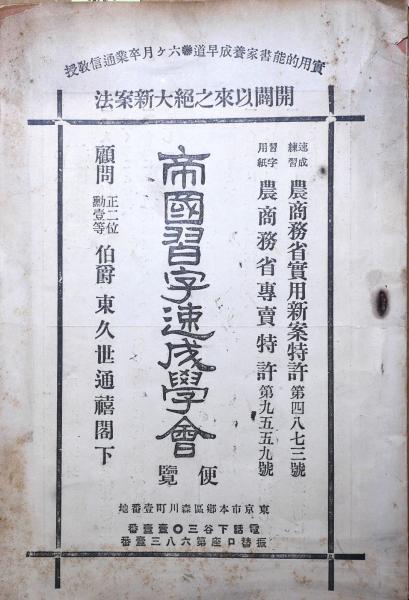 實用的能書家養成早道聯六ケ月卒業通信敎授
開闢以來之絕大新案法
速成練習 農商務省實用新案特許第四八七三號
習字用紙 農商務省專賣特許第九五五九號
帝國習字速成學會
便覽
顧問 正二位勳壹等 伯爵 東久世通禧閣下
東京市本鄕區森川町壹番地
電話下谷三〇壹壹番
振替口座第六八三壹番